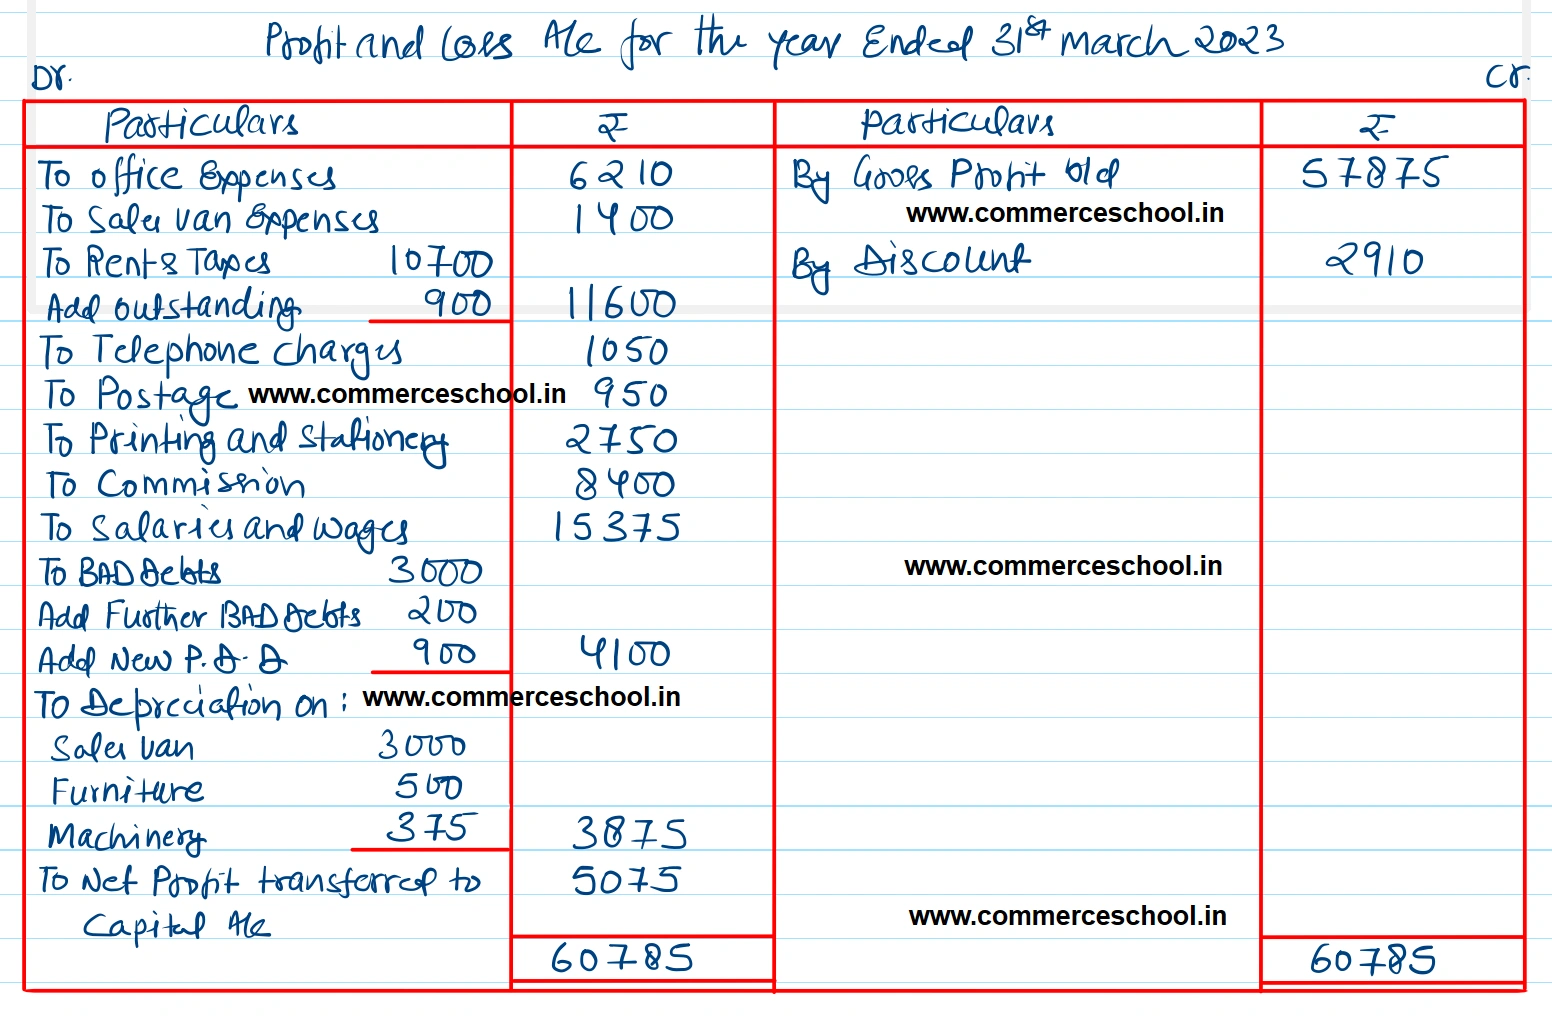 Profit and Loss A/c for the year Ended 31st March 2023
Dr. Cr.
Particulars ₹ Particulars ₹
To Office Expenses 6210 By Gross Profit b/d 57875
To Sales Van Expenses 1400 www.commerceschool.in
To Rent & Taxes 10700 By Discount 2910
Add Outstanding 900 11600
To Telephone Charges 1050
To Postage www.commerceschool.in 950
To Printing and Stationery 2750
To Commission 8400
To Salaries and Wages 15375
To BAD Debts 3000 www.commerceschool.in
Add Further BAD Debts 200
Add New P.D.D 900 4100
To Depreciation on : www.commerceschool.in
Sales Van 3000
Furniture 500
Machinery 375 3875
To Net Profit transferred to 5075
Capital A/c www.commerceschool.in
60785 60785